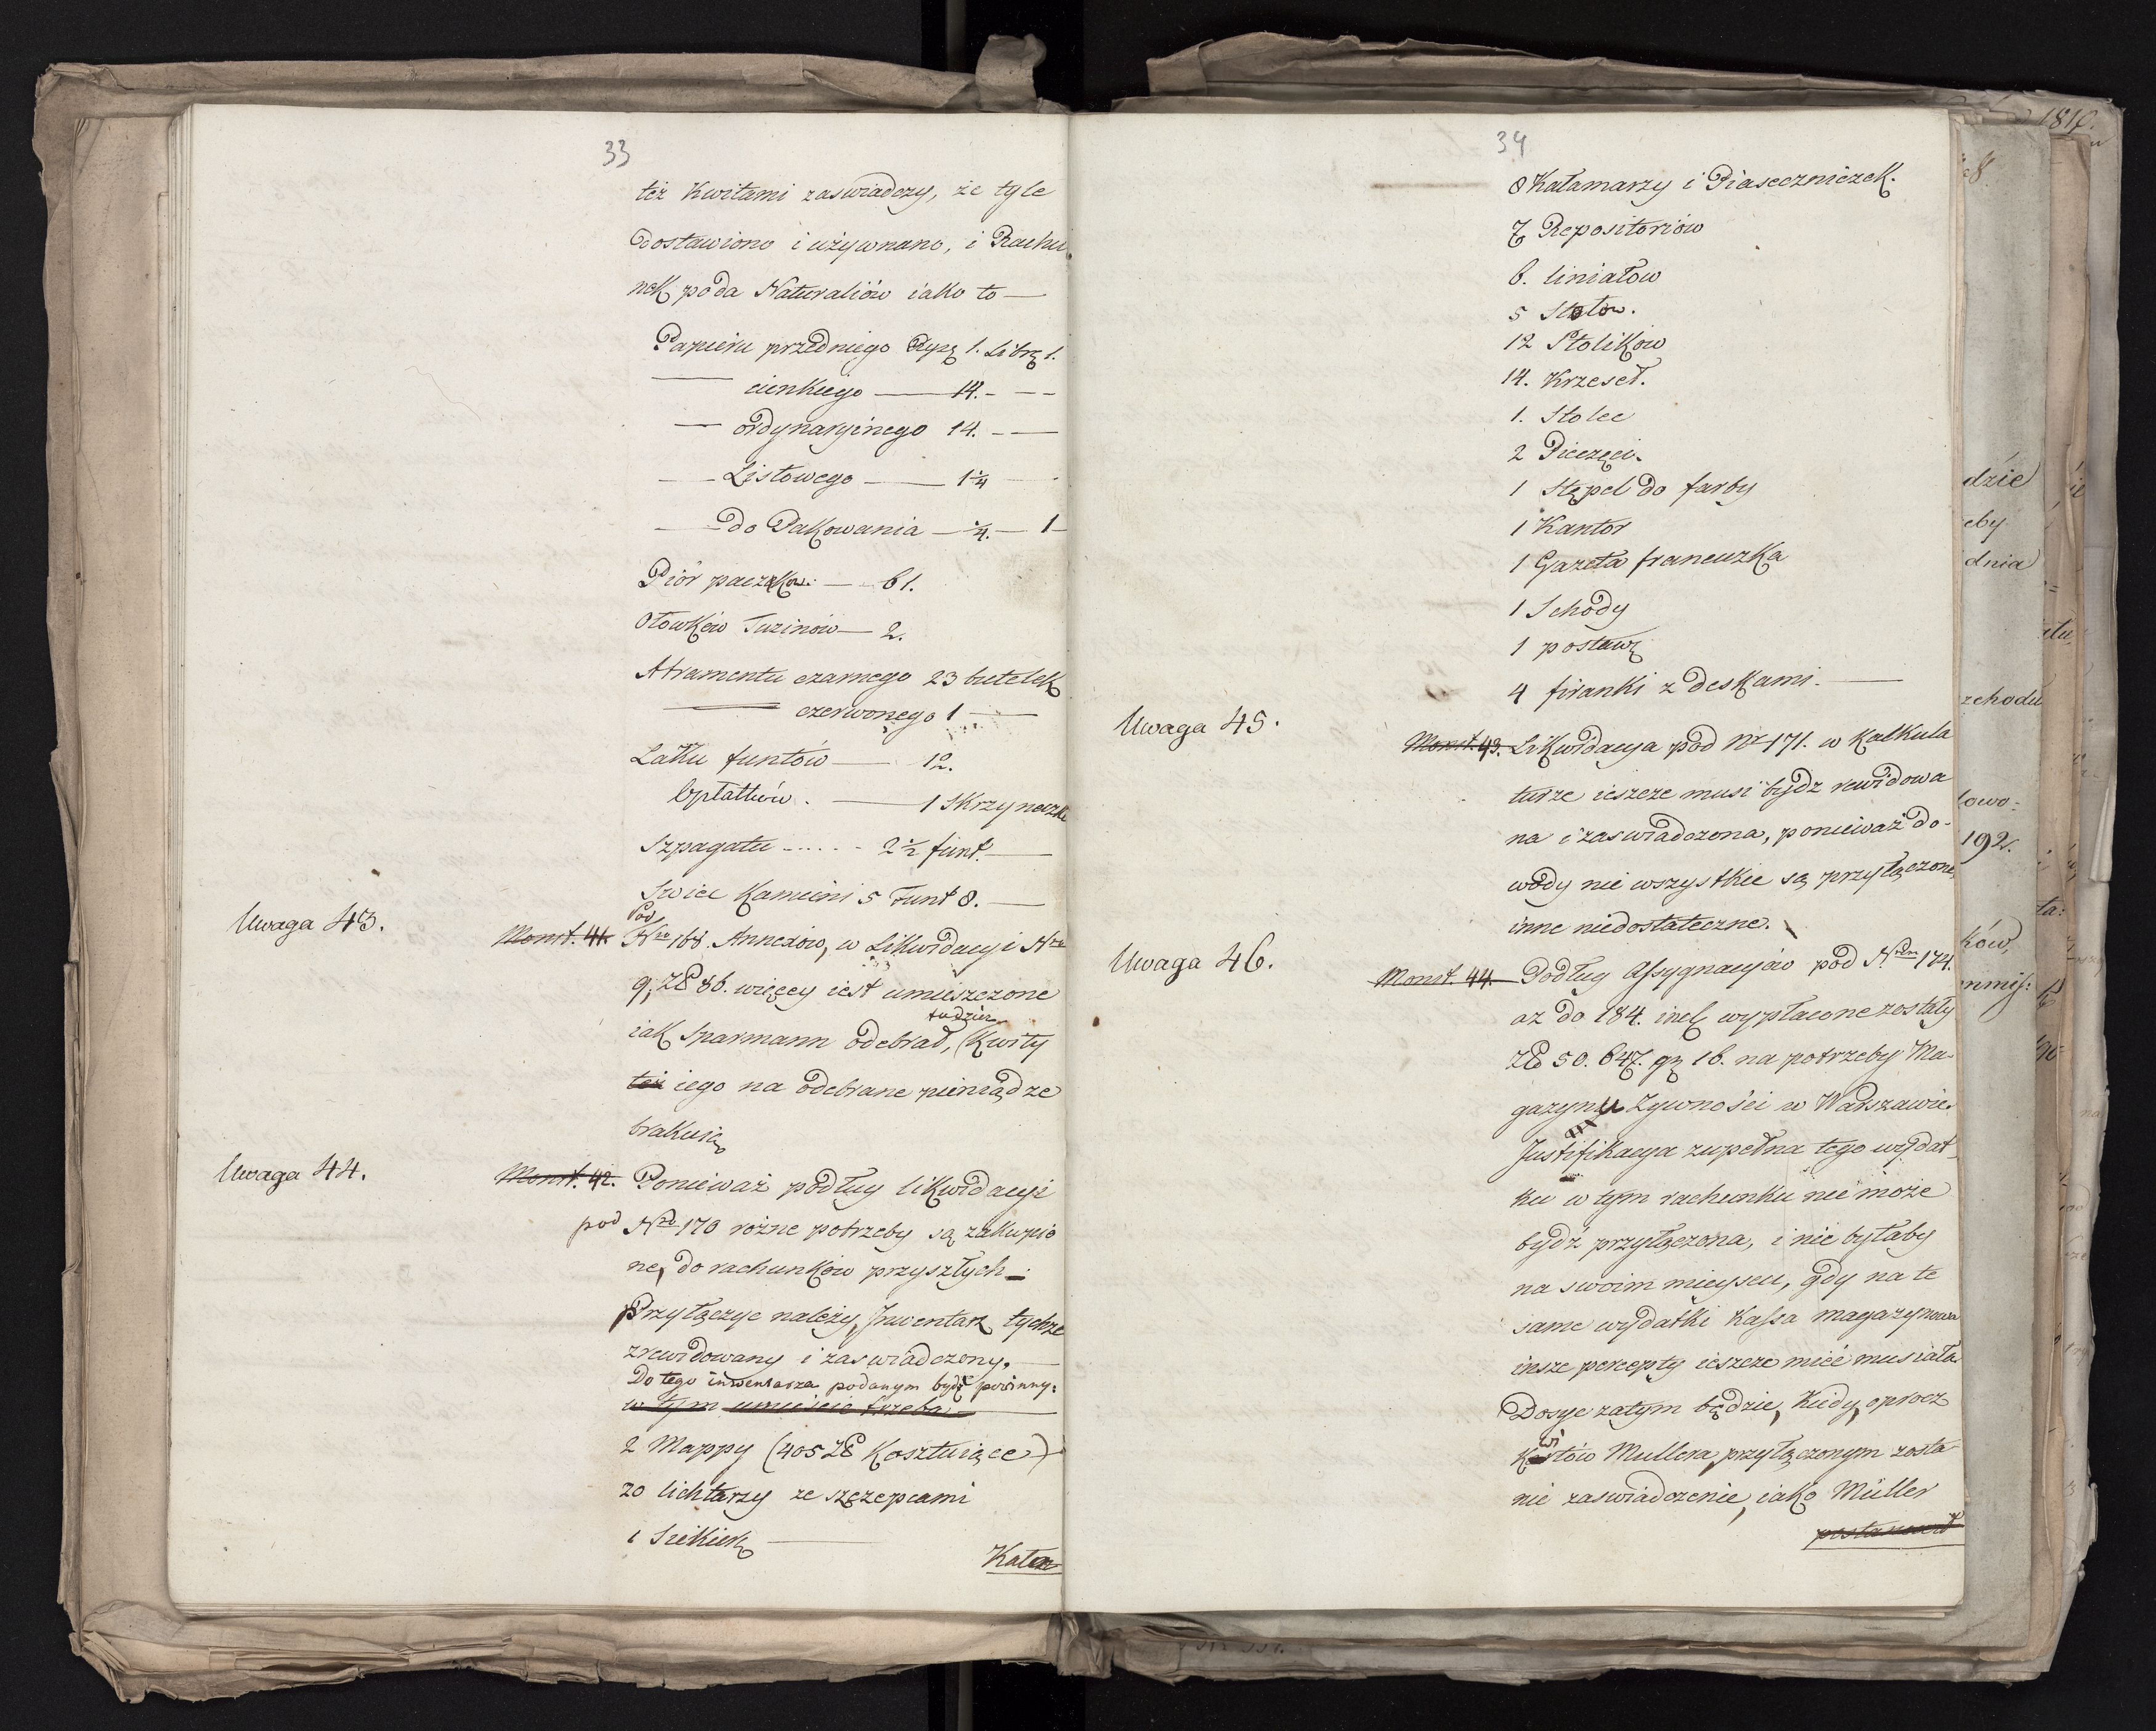 33
też Kwitami zaswiadczy, że tyle
Dostawiono i używnano, i Rachu
nek poda Naturaliów iako to —
Papieru przedniego Ryzę 1. Librę 1.
— cienkiego — 14. — —
— ordynaryinego 14. — —
— Listowego — 1 1/4 —
— do Pakowania — 1/4. — 1 —
Piór paczków. — 61.
Ołowków Tuzinów — 2.
Atramentu czarnego 23 butelek
— czerwonego 1 —
Laku funtów — 12.
Opłatków. — 1 Skrzyneczkę
Szpagatu ...... 2 1/2 funt. —
Swiec Kamieni 5 Funt 8. —
Uwaga 43.
Monit. 41. Pod Nro 168. Annexów, w Likwidacyi Nro
9, Zł 86. więcey iest umieszczone
tudzież
iak Sparmann odebrał, (Kwity
też iego na odebrane pieniądze
brakuią
Uwaga 44.
Monit. 42. Ponieważ podług likwidacyi
pod Nro 170 rożne potrzeby są zakupio
ne, do rachunków przyszłych —
Przyłączyc należy, Inwentarz tychże
zrewidowany i zaswiadczony. —
Do tego inwentarza podanym bydź powinny:
w tym umieścić trzeba —
2 Mappy (405 Zł Kosztuiące)
20 lichtarzy ze szczepcami
1 Siekierę —
Kałam
34
8 Kałamarzy i Piaseczniczek.
7 Repositoriów
6. liniałow
5 Stołow.
12 Stolików
14. Krzeseł.
1. Stolec
2 Pieczęci.
1 Stępel do farby
1 Kantor
1 Gazeta francuzka
1 Schody
1 postawę
4 firanki z deskami. —
Uwaga 45.
Monit. 43. Likwidacya pod Nr 171. w Kalkula
turze ieszcze musi bydz rewidowa
na i zaswiadczona, ponieważ do-
wody nie wszystkie są przyłączone,
inne niedostateczne.
Uwaga 46.
Monit. 44. Podług Assygnacyiów pod N. 174.
az do 184. incl. wypłacone zostały
Zł 50. 647. gr 16. na potrzeby Ma-
gazynu Zywności w Warszawie.
Justifikacya zupełna tego wydat-
ku w tym rachunku nie może
bydź przyłączona, i nie byłaby
na swoim mieyscu, gdy na te
same wydatki Kassa magazynowa
insze percepty ieszcze mieć musiała
Dosyc zatym będzie, Kiedy, oprocz
Kwitów Mullera, przyłączonym zosta
nie zaswiadczenie, iako Müller
postanowił
1810.
dzie
eby
dnia
zchodu
łowo:
192.
ków,